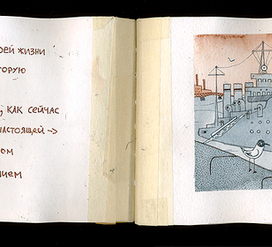 ЕЙ ЖИЗНИ
ТОРУЮ
, КАК СЕЙЧАС
НАСТОЯЩЕЙ →
ОМ
НИЕМ